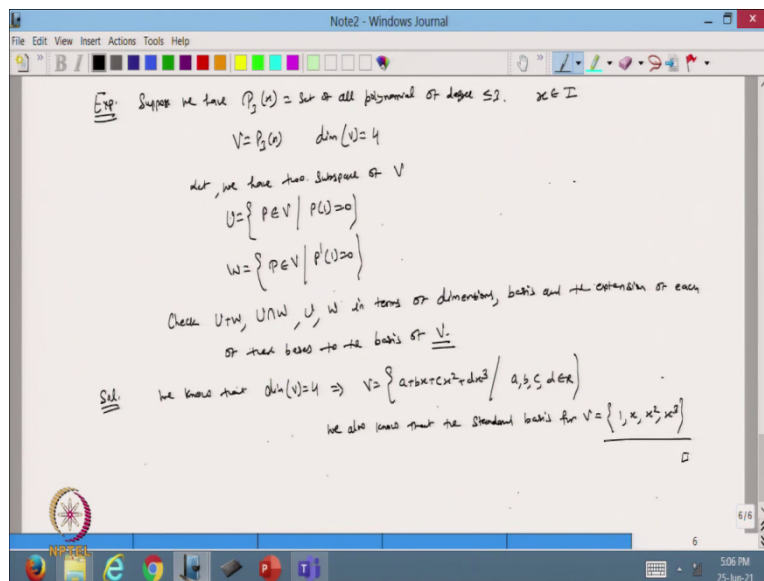 Note2 - Windows Journal
File Edit View Insert Actions Tools Help
Exp. Suppose we have P₃(x) = Set of all polynomial of degree ≤3. x ∈ I
V = P₃(x) dim(V)=4
Let, we have two subspace of V
U = { P ∈ V | P(1)=0 }
W = { P ∈ V | P'(1)=0 }
Check U+W, U∩W, U, W in terms of dimensions, basis and the extension of each
of these bases to the basis of V.
Sol. We know that dim(V)=4 ⇒ V = { a+bx+cx²+dx³ / a,b,c,d ∈ R }
We also know that the standard basis for V = { 1, x, x², x³ }
6/6
6
NPTEL
5:06 PM
25-Jun-21